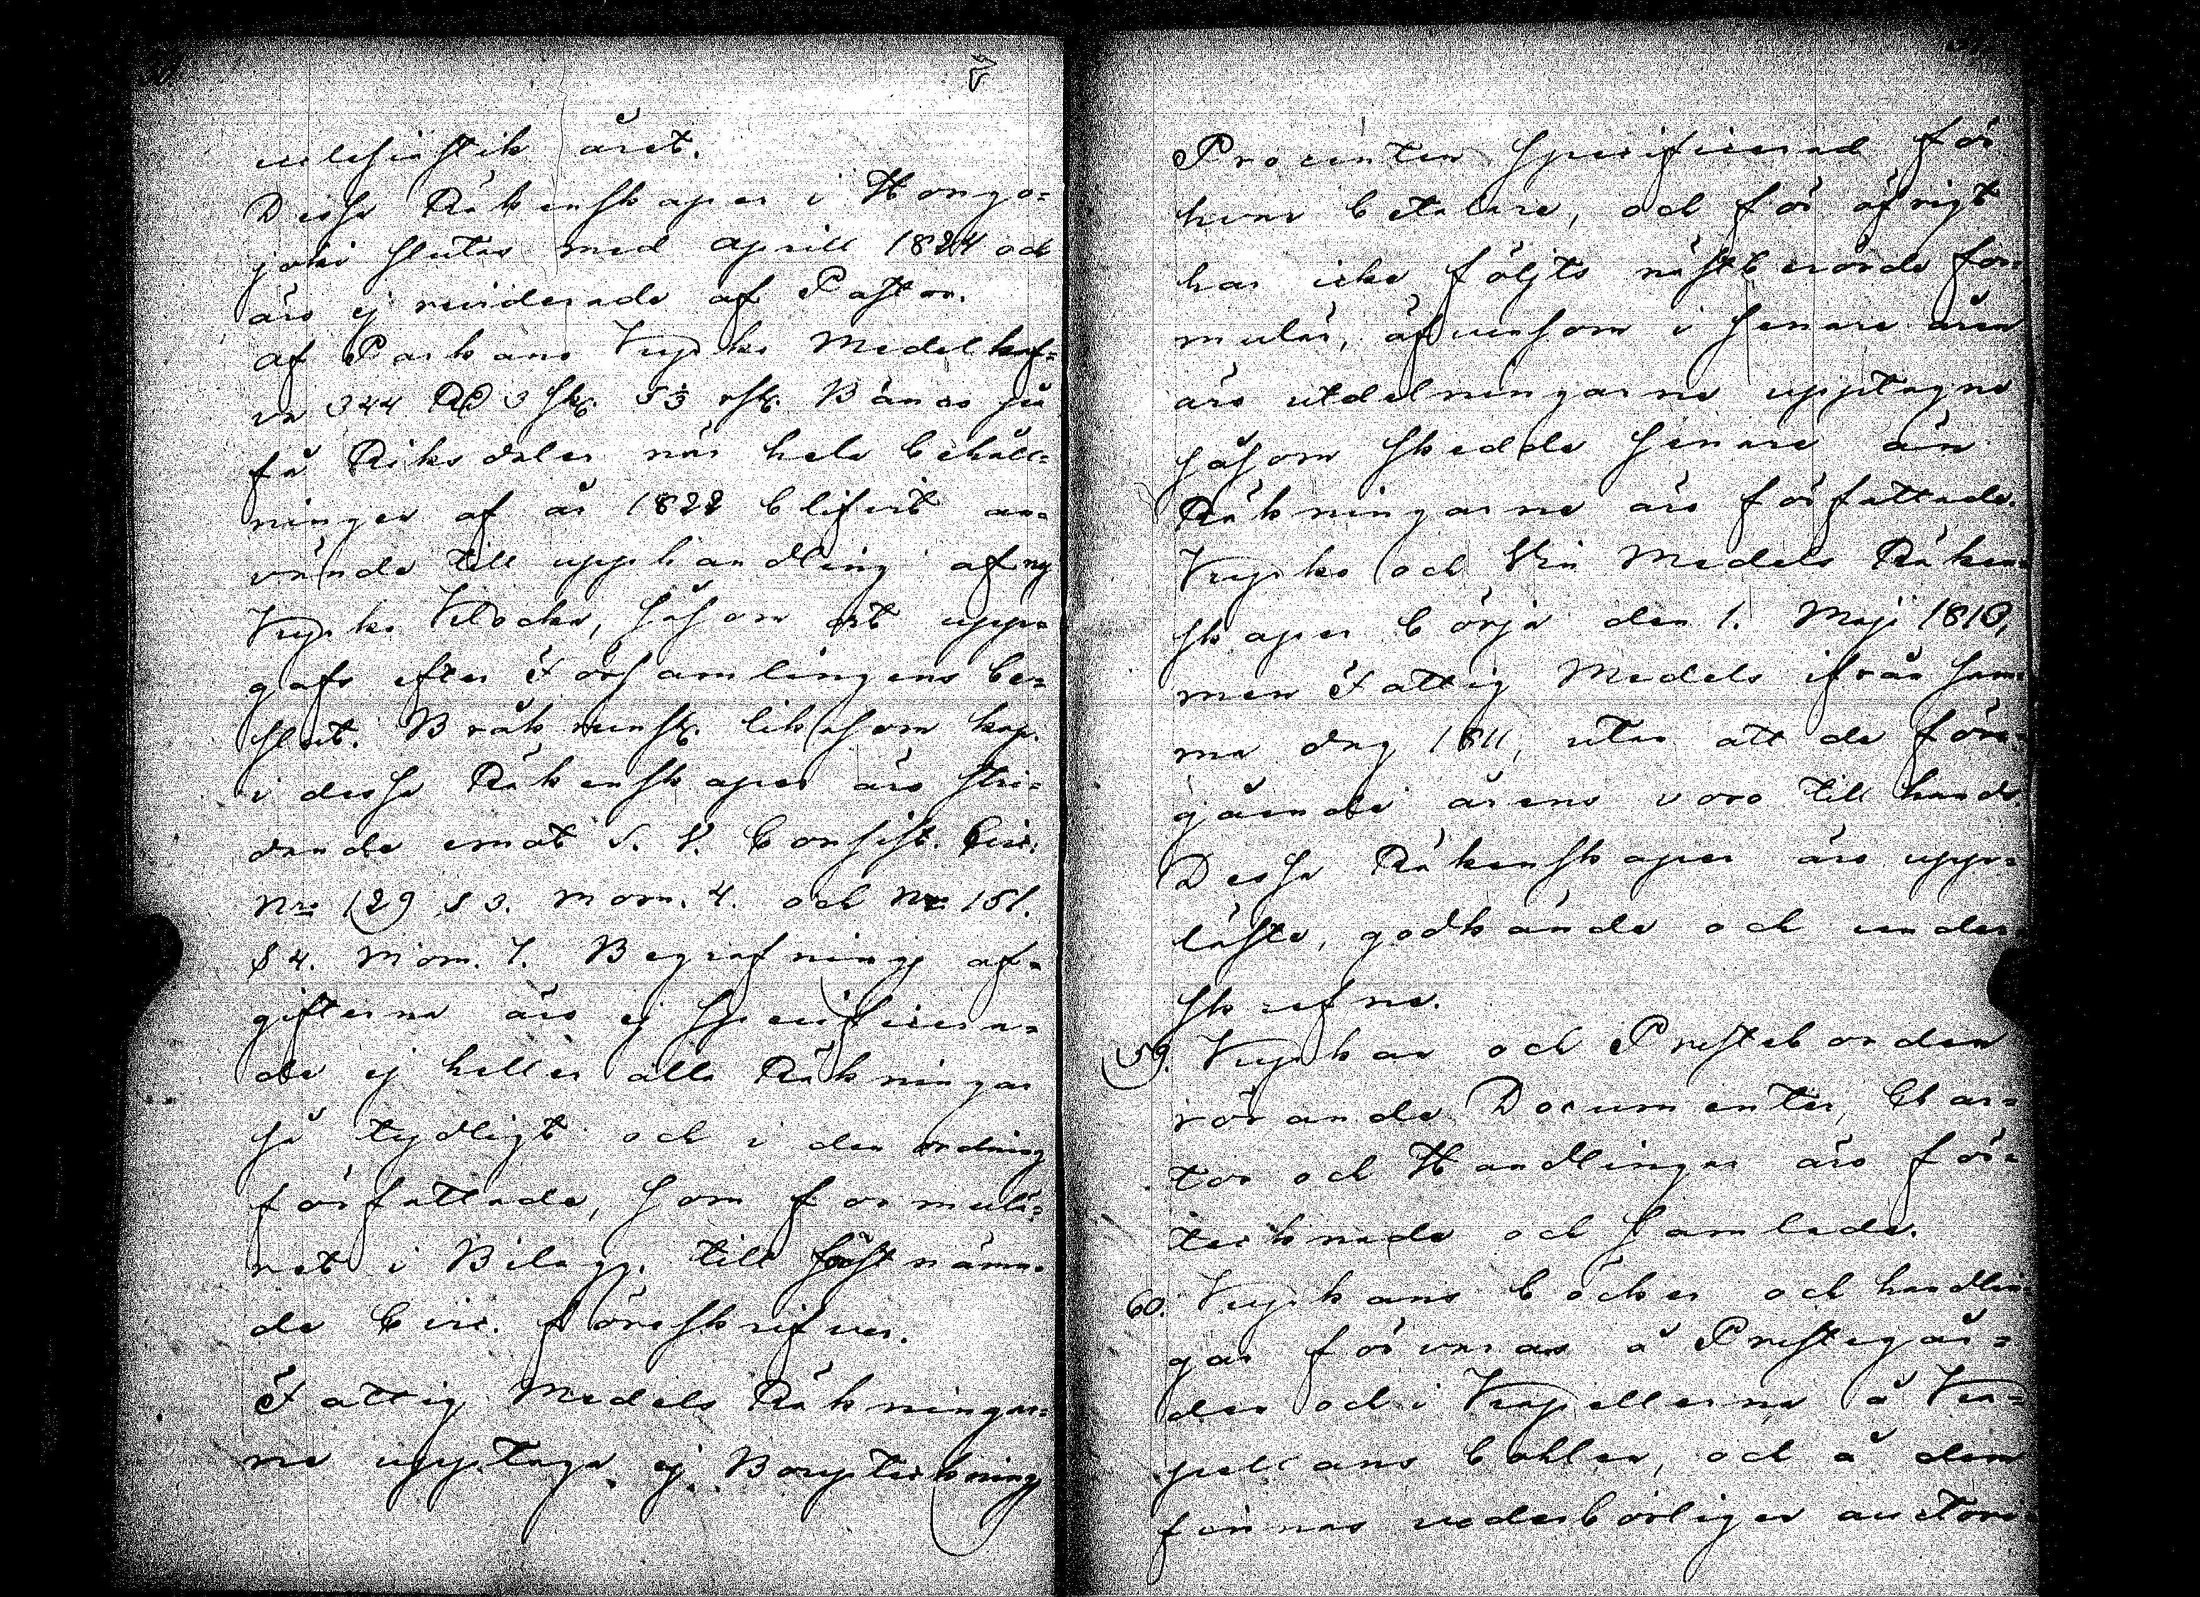 ecclesiastik året.
Dessa Räkenskaper i Hongo-
joki slutas med april 1824 och
äro ej reviderade af Pastor.
af Parkano Kyrko Medel haf-
va 344 RD 3 sk. 53 rst. Banco på
få Riksdaler när hela behåll-
ningen af år 1822 blifvit an-
vände till upphandling af ny
Kyrko Klocka, såsom det upp-
gafs efter Församlingens be-
slut. Bråk runst. liksom kop.
i dessa Räkenskaper äro stri-
dande emot S. V. Consist. Circ.
Nro 129 § 3. mom. 4. och Nro 151.
§ 4. Mom. 7. Begrafnings af-
gifterna äro ej specificera-
de ej heller alla Räkningar
så tydligt och i den ordning
författade, som formulä-
ret i Bilag. till sistnämn-
de Circ. föreskrifver.
Fattig Medels Räkningar-
ne upptaga ej Borgteckning
Procenten specificerad för
hvar betalare, och för öfrigt
har icke följts nästberörde for-
mulär, äfvensom i senare åren
äro utdelningarne upptagne
såsom skedde senare än
Räkningarne äro författade.
Kyrko och Vin Medels Räken-
skaper börja den 1. Maji 1813,
men Fattig Medels ifrån sam-
ma dag 1811, utan att de före-
gående årens voro till hands.
Dessa Räkenskaper äro upp-
läste, godkände och under-
skrefne.
59. Kyrkan och Prestborden
rörande Documenter, Char-
tor och Handlingar äro för-
tecknade och samlade.
60. Kyrkans böcker och handlin-
gar förvaras å Prestegår-
den och i Kapellerna å Ka-
pellans bohlen, och å dem
finnas vederbörligen auctori-